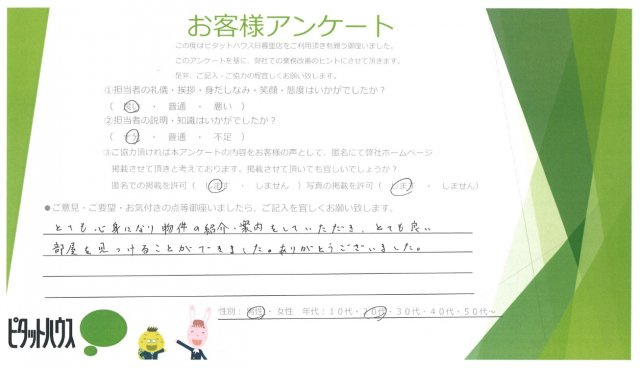 お客様アンケート
この度はピタットハウス日暮里店をご利用頂き有難う御座いました。
このアンケートを基に、弊社での業務改善のヒントにさせて頂きます。
是非、ご記入・ご協力の程宜しくお願い致します。
①担当者の礼儀・挨拶・身だしなみ・笑顔・態度はいかがでしたか？
（ 良い ・ 普通 ・ 悪い ）
②担当者の説明・知識はいかがでしたか？
（ 十分 ・ 普通 ・ 不足 ）
③ご協力頂ければ本アンケートの内容をお客様の声として、匿名にて弊社ホームページ
掲載させて頂きと考えております。掲載させて頂いても宜しいでしょうか？
匿名での掲載を許可（ します ・ しません ）写真の掲載を許可（ します ・ しません）
●ご意見・ご要望・お気付きの点等御座いましたら、ご記入を宜しくお願い致します。
とても心身になり物件の紹介・案内をしていただき、とても良い
部屋を見つけることができました。ありがとうございました。
性別：男性・ 女性 年代：１０代・２０代・３０代・４０代・５０代～
ピタットハウス